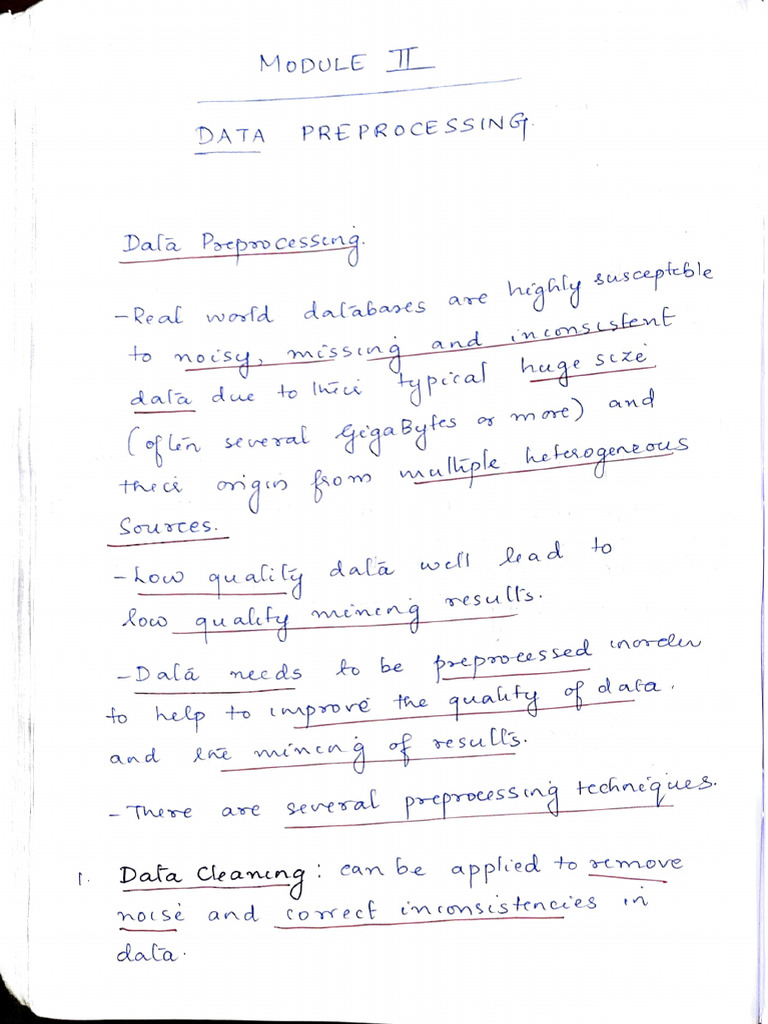 MODULE II
DATA PREPROCESSING.
Data Preprocessing.
- Real world databases are highly susceptible
to noisy, missing and inconsistent
data due to their typical huge size
(often several GigaBytes or more) and
their origin from multiple heterogeneous
Sources.
- Low quality data will lead to
low quality mining results.
- Data needs to be preprocessed inorder
to help to improve the quality of data.
and the mining of results.
- There are several preprocessing techniques.
1. Data Cleaning: can be applied to remove
noise and correct inconsistencies in
data.